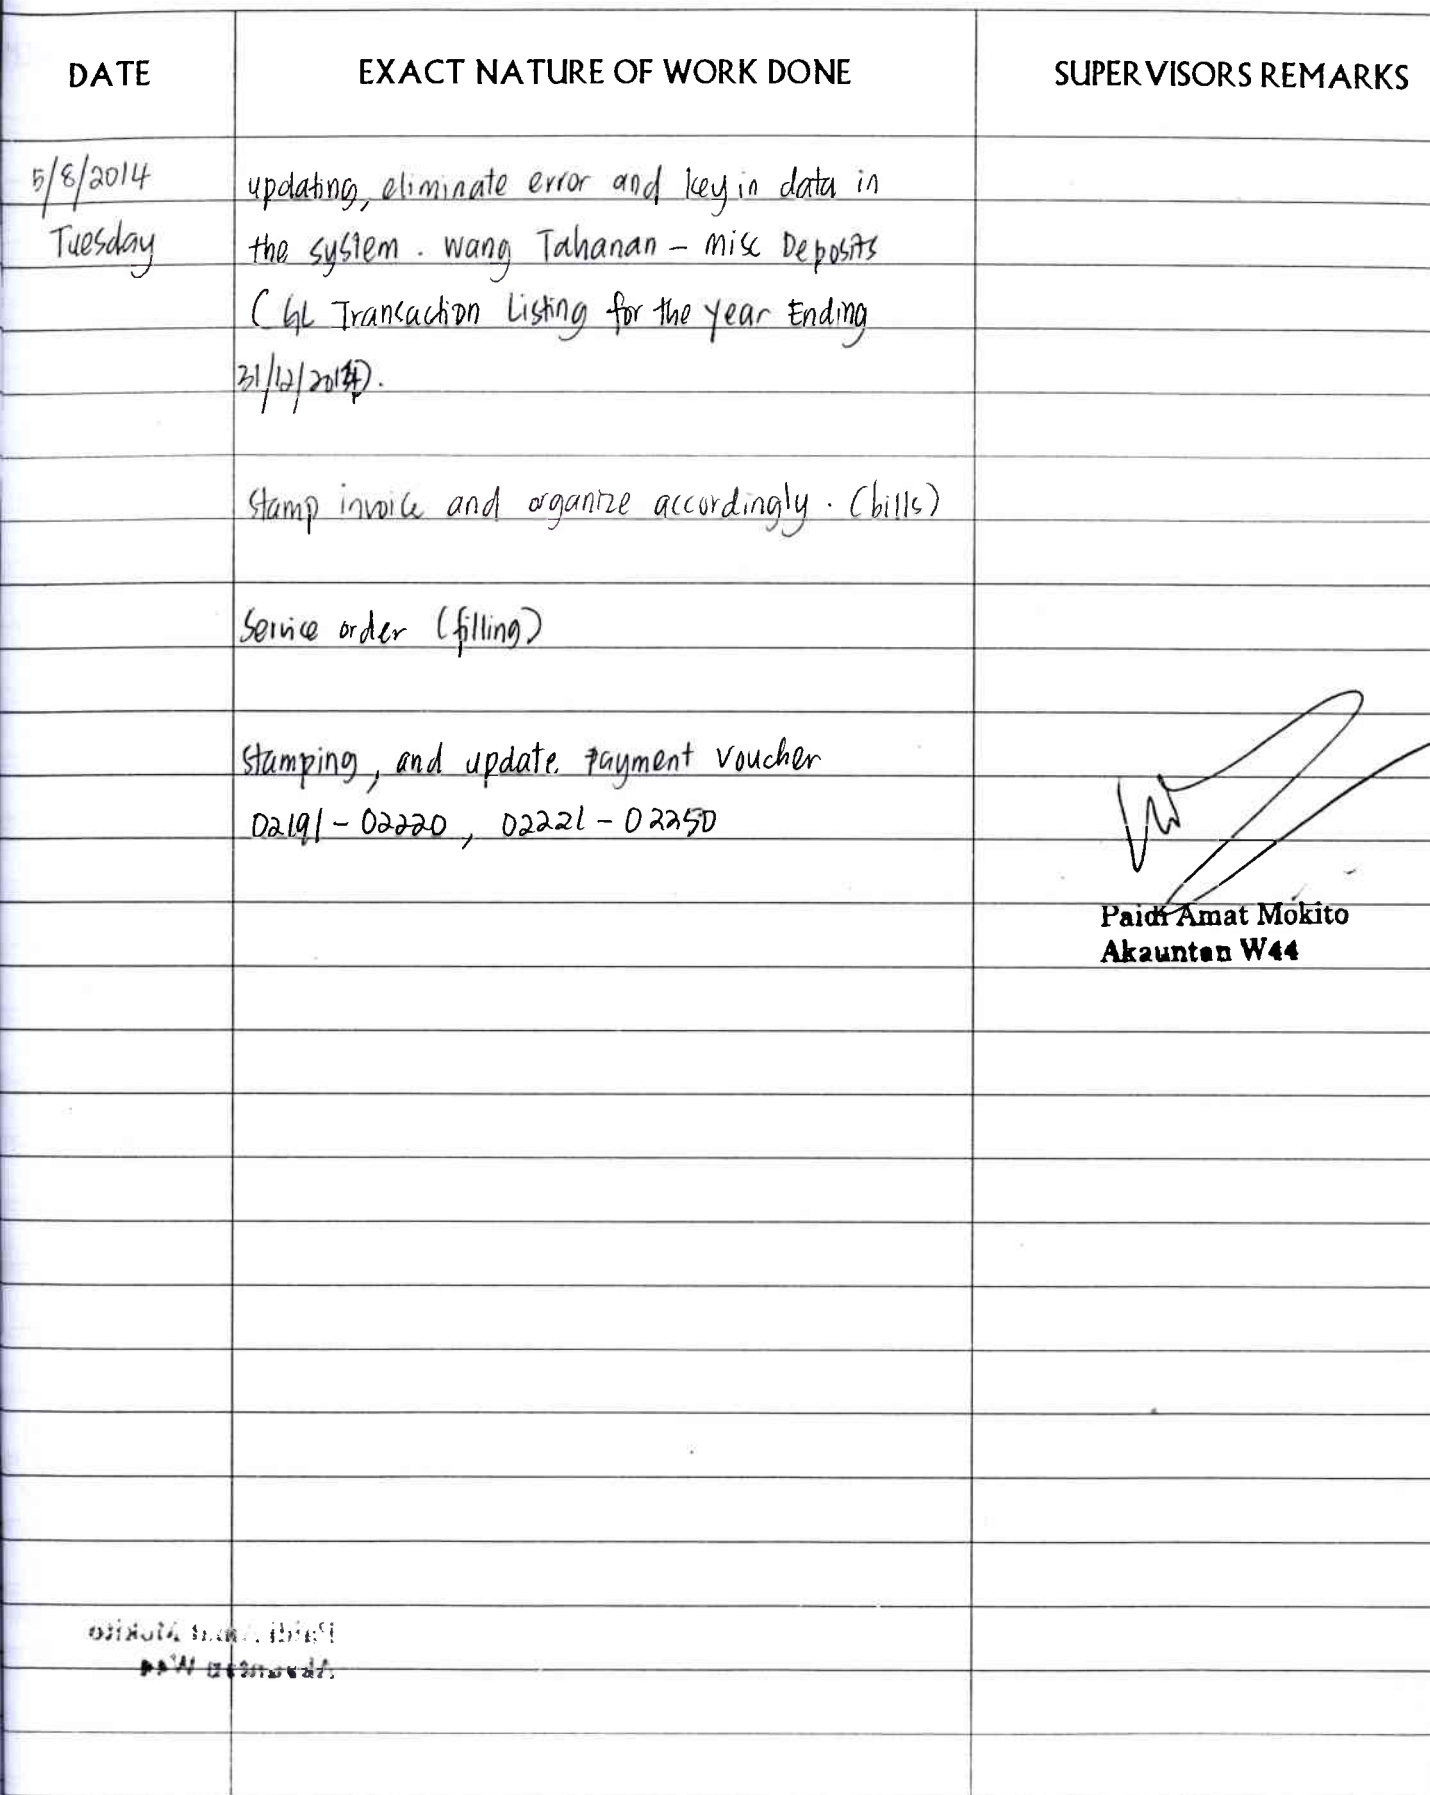 DATE EXACT NATURE OF WORK DONE SUPERVISORS REMARKS
5/8/2014 updating, eliminate error and key in data in
Tuesday the system. Wang Tahanan - misc Deposits
(GL Trancaction Listing for the year Ending
31/12/2014).
Stamp invoice and organize accordingly. (bills)
Service order (filling)
Stamping, and update Payment Voucher
02191 - 02220, 02221 - 02250
Paidi Amat Mokito
Akauntan W44
Paidi Amat Mokito
Akauntan W44